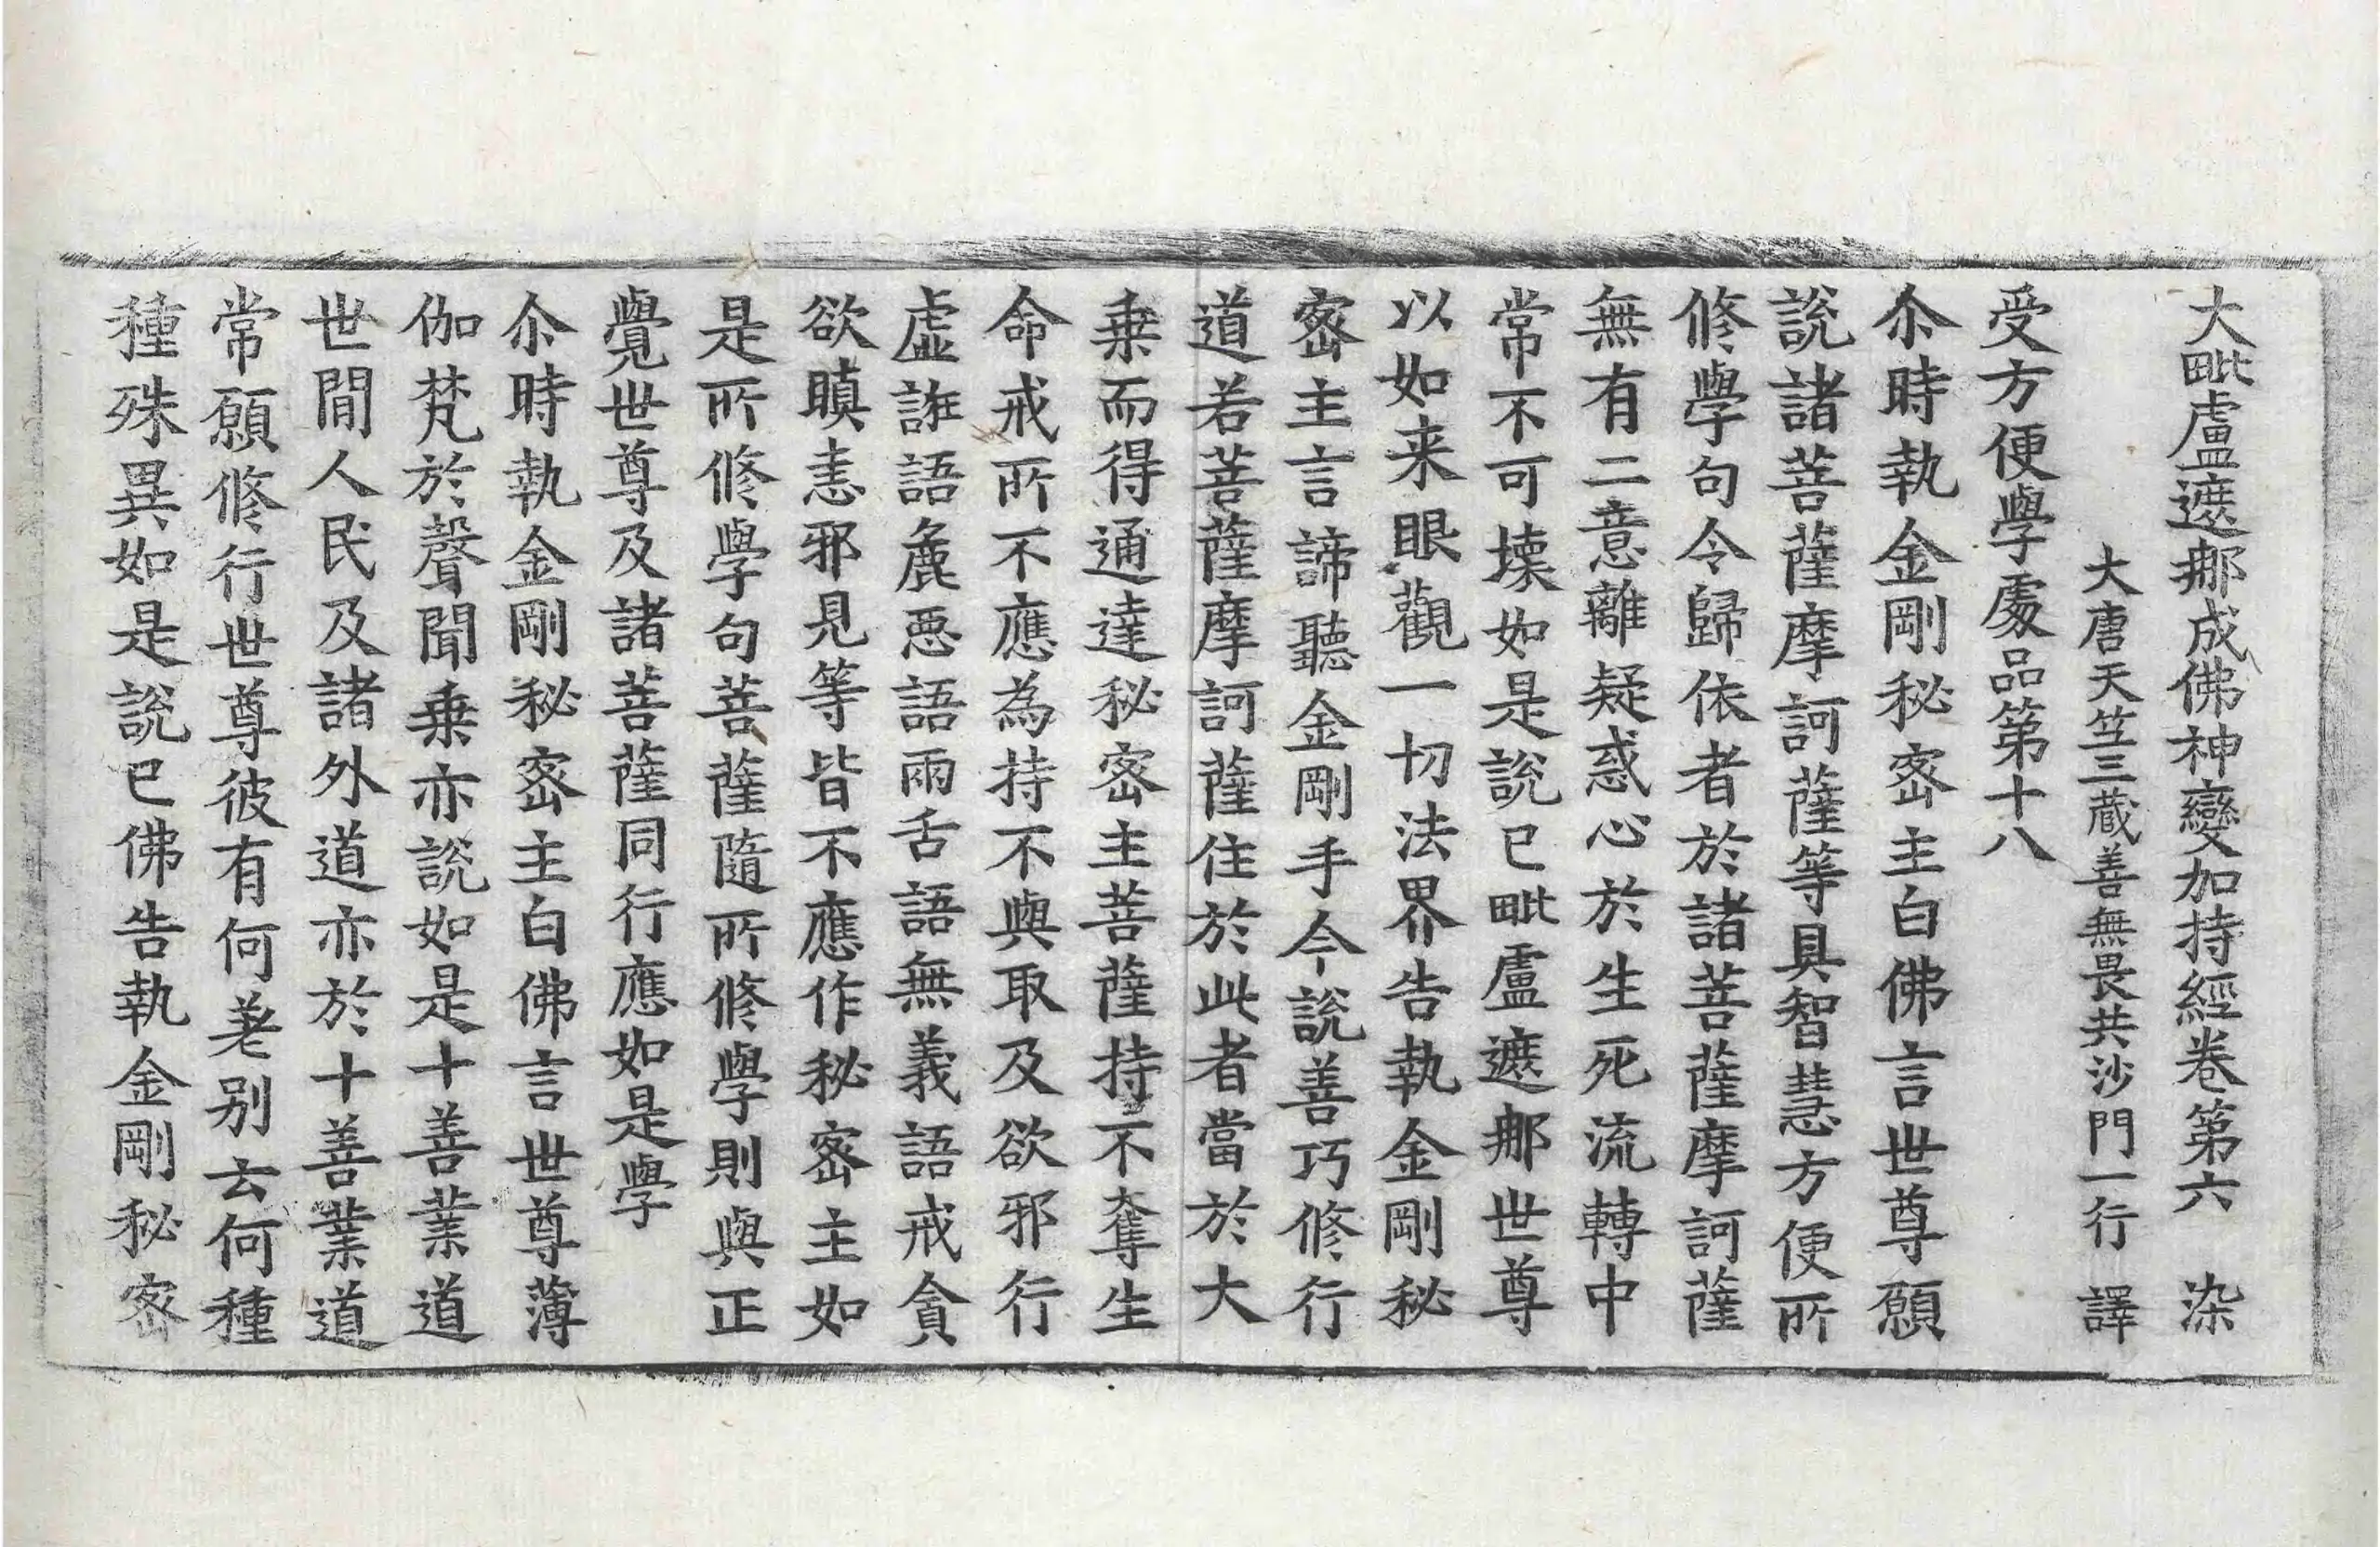 大毗盧遮那成佛神變加持經卷第六 染
大唐天竺三藏善無畏共沙門一行 譯
受方便學處品第十八
尒時執金剛秘密主白佛言世尊願
說諸菩薩摩訶薩等具智慧方便所
修學句令歸依者於諸菩薩摩訶薩
無有二意離疑惑心於生死流轉中
常不可壞如是說已毗盧遮那世尊
以如来眼觀一切法界告執金剛秘
密主言諦聽金剛手今說善巧修行
道若菩薩摩訶薩住於此者當於大
乗而得通達秘密主菩薩持不奪生
命戒所不應為持不與取及欲邪行
虛誑語麁惡語兩舌語無義語戒貪
欲瞋恚邪見等皆不應作秘密主如
是所修學句菩薩隨所修學則與正
覺世尊及諸菩薩同行應如是學
尒時執金剛秘密主白佛言世尊薄
伽梵於聲聞乗亦說如是十善業道
世間人民及諸外道亦於十善業道
常願修行世尊彼有何差别云何種
種殊異如是說已佛告執金剛秘密